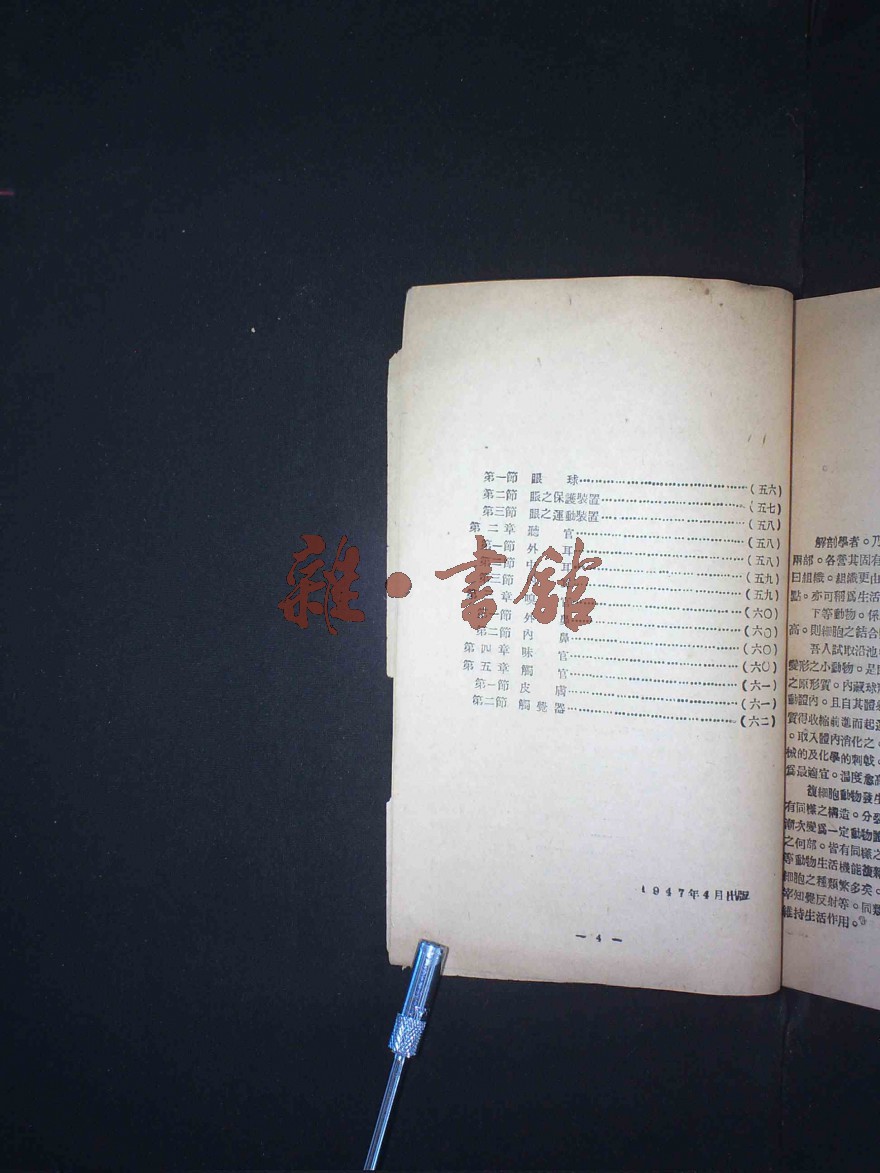 第一節 眼 球(五六)
第二節 眼之保護裝置(五七)
第三節 眼之運動裝置(五八)
第二章 聽 官(五八)
第一節 外 耳(五八)
第二節 中 耳(五八)
第三節(五九)
章 嗅 官(五九)
第一節 外 鼻(六〇)
第二節 內 鼻(六〇)
第四章 味 官(六〇)
第五章 觸 官(六〇)
第一節 皮 膚(六一)
第二節 觸覺器(六一)
(六二)
1947年4月出版
— 4 —
雜·書館
解剖學者。乃
兩部。各營其固有
曰組織。組織更由
點。亦可稱爲生活
下等動物。係
高。則細胞之結合
吾人試取沿池
變形之小動物。是
之原形質。內藏球
動體內。且自其體
質得收縮前進而起
。取入體內消化之。
械的及化學的刺戟。
爲最適宜。溫度愈高
複細胞動物發生
有同樣之構造。分裂
漸次變爲一定動物
之何部。皆有同樣之
等動物生活機能複雜
細胞之種類繁多矣。
宰知覺反射等。同類
維持生活作用。